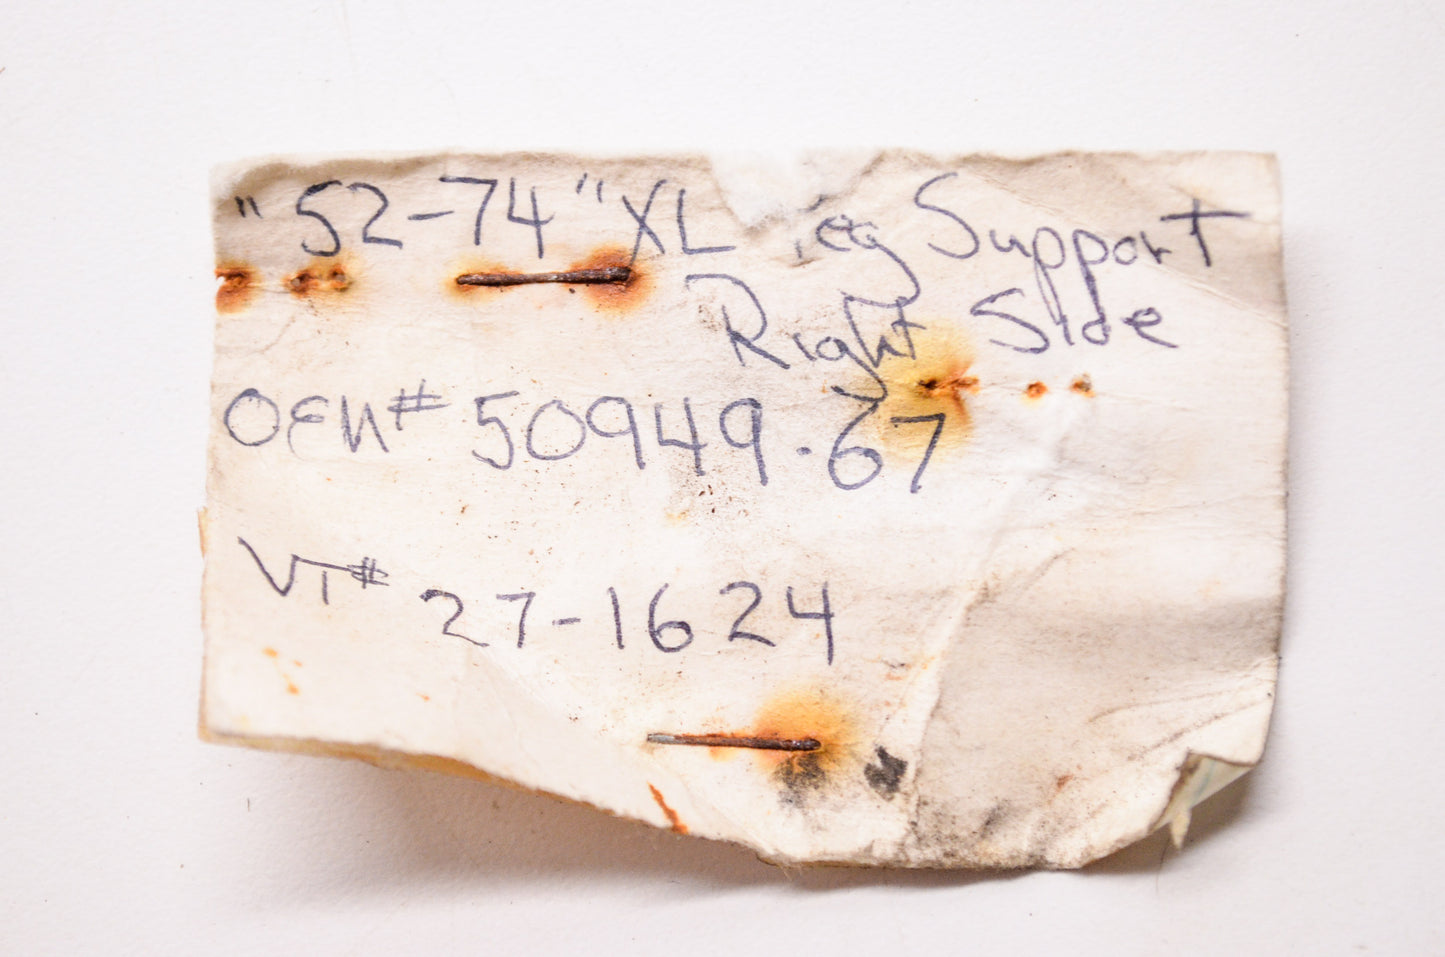 "52-74" XL eg Support
Right Side
OEM# 50949-67
VT# 27-1624